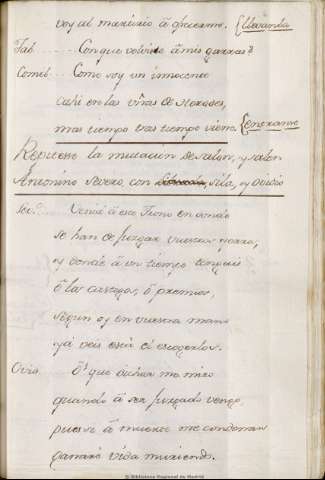 voy al martirio á ofrecerme. (llevanla
Fab. ... Conque volviste á mis garras?
Comil ... Como soy un innocente
casi en las uñas de Herodes,
mas tiempo tras tiempo viene. (entranse
Repitese la mutacion de salon, y salen
Antonino Severo, con Sila, y Ovidio
Sev.º ... Venid á este Trono en donde
se han de juzgar vuestros yerros,
y donde á un tiempo tengais
ó los castigos, ó premios,
segun oy en vuestra mano
ya veis está el escogerlos.
Ovid. ... O! que dichas me miro
quando á ser juzgado vengo,
pues si á muerte me condenan
ganaré vida muriendo.
© Biblioteca Regional de Madrid